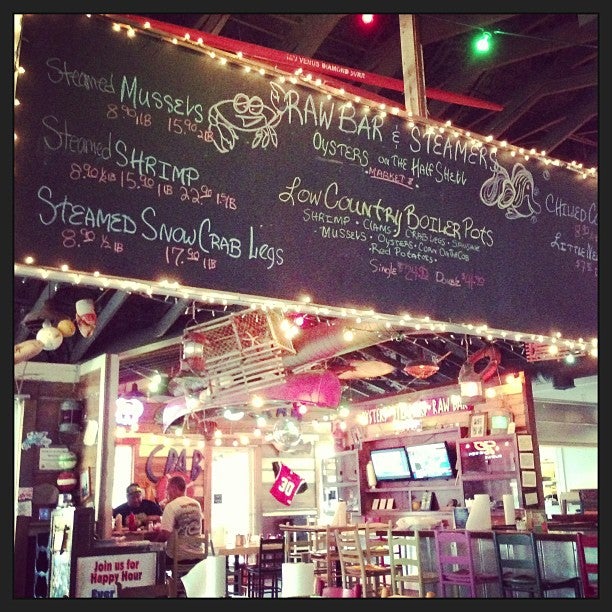 Steamed MUSSELS
8.90 lB 15.90 2lB
Steamed SHRIMP
8.90 ½ lB 15.90 1 lB 22.90 1.½ lB
STEAMED SNOW CRAB Legs
8.90 ½ lB 17.90 1 lB
RAW BAR & STEAMERS
OYSTERS ON THE HALF SHELL
MARKET $
LOW COUNTRY BOILER POTS
SHRIMP · CLAMS · CRAB LEGS · SAUSAGE
- MUSSELS · OYSTERS · CORN ON THE COB
Red Potatoes
Single $24.90 Double
CHILLED
RAW BAR
CRAB
30
Join us for
Happy Hour